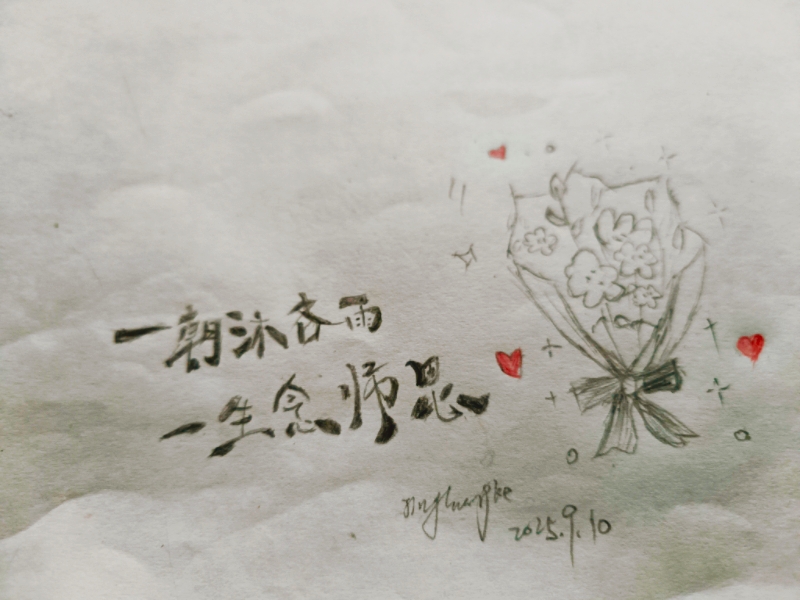 一朝沐杏雨
一生念师恩
2025.9.10